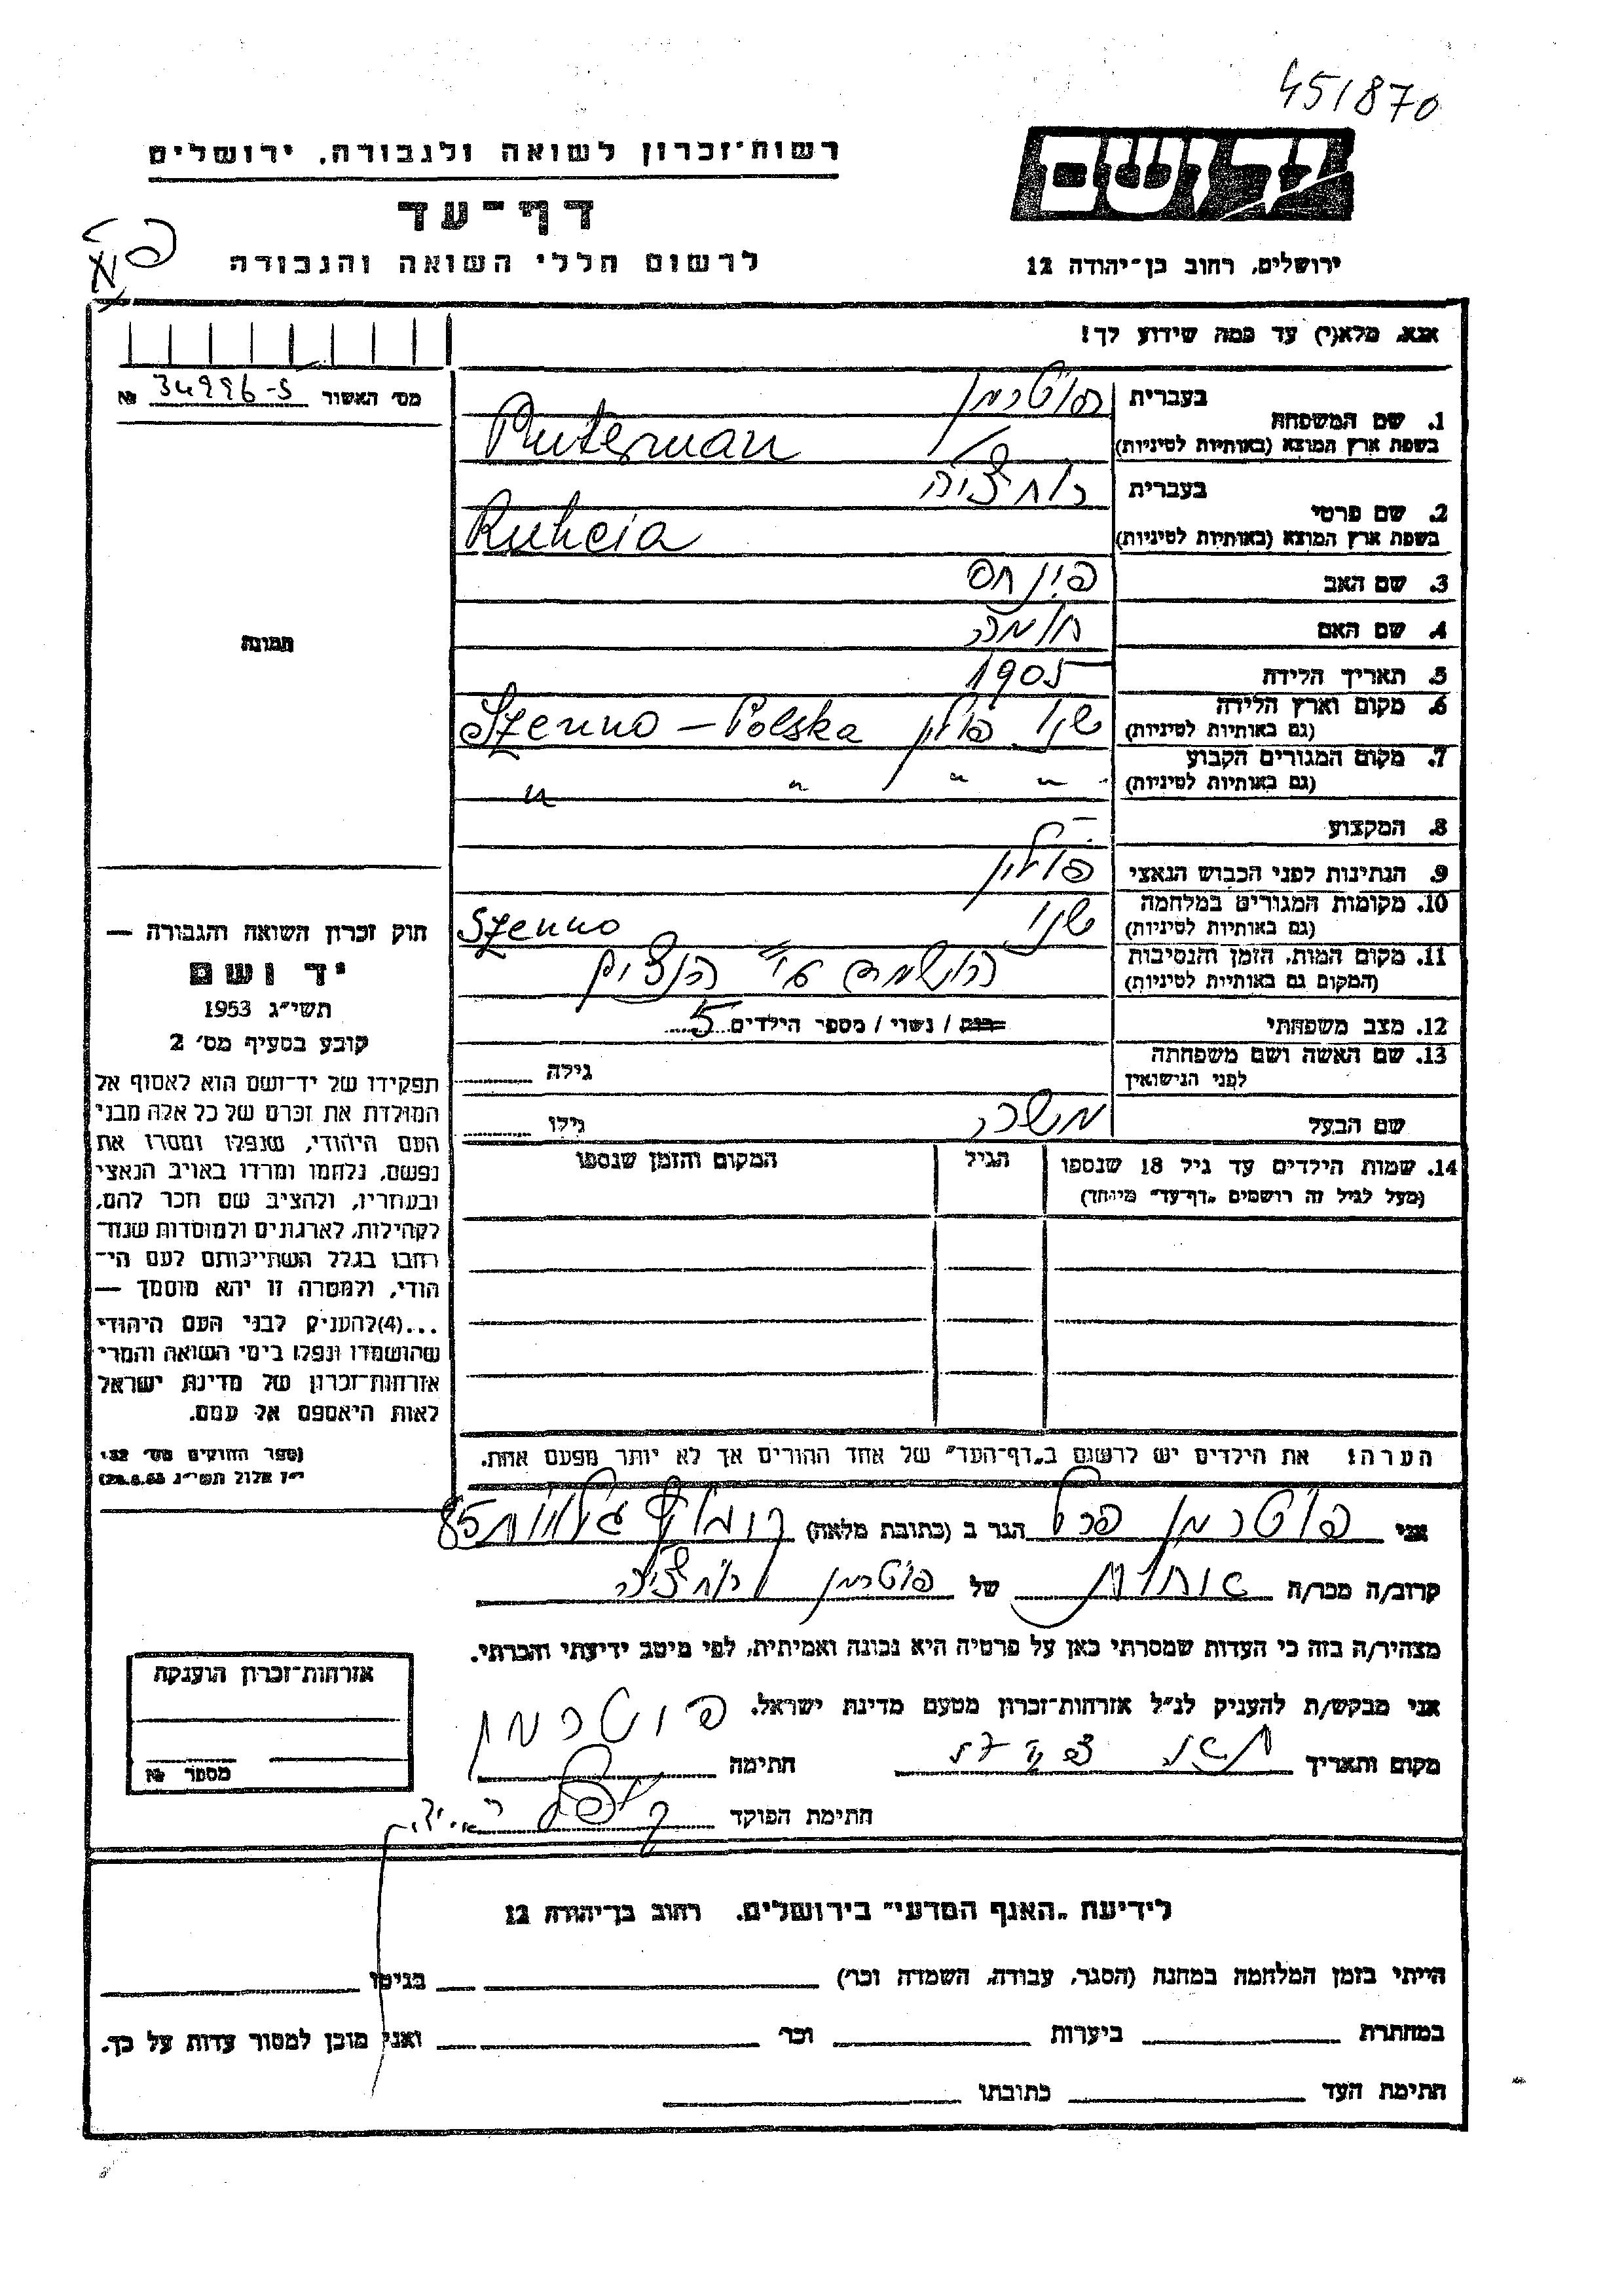 451870
יד ושם
רשות־זכרון לשואה ולגבורה, ירושלים
דף־עד
לרשום חללי השואה והגבורה
ירושלים, רחוב בן־יהודה 12
אנא, מלא(י) עד כמה שידוע לך!
מס׳ האשור 34996-5 №
1. שם המשפחה
בעברית פוטרמן
בשפת ארץ המוצא (באותיות לטיניות) Puterman
2. שם פרטי
בעברית רוחציה
בשפת ארץ המוצא (באותיות לטיניות) Ruhcia
3. שם האב פינחס
4. שם האם נחמה
5. תאריך הלידה 1905
6. מקום וארץ הלידה
(גם באותיות לטיניות) שנו פולין Szenno – Polska
7. מקום המגורים הקבוע
(גם באותיות לטיניות) " " " "
8. המקצוע –
9. הנתינות לפני הכבוש הנאצי פולין
10. מקומות המגורים במלחמה
(גם באותיות לטיניות) שנו Szenno
11. מקום המות, הזמן והנסיבות
(המקום גם באותיות לטיניות) הושמדה ע״י הנצים
12. מצב משפחתי רווק / נשוי / מספר הילדים 5
13. שם האשה ושם משפחתה
לפני הנישואין
גילה
שם הבעל משה
גילו
14. שמות הילדים עד גיל 18 שנספו
(מעל לגיל זה רושמים „דף־עד״ מיוחד)
הגיל
המקום והזמן שנספו
הערה: את הילדים יש לרשום ב„דף־העד״ של אחד ההורים אך לא יותר מפעם אחת.
תמונה
חוק זכרון השואה והגבורה —
יד ושם
תשי״ג 1953
קובע בסעיף מס׳ 2
תפקידו של יד־ושם הוא לאסוף אל
המולדת את זכרם של כל אלה מבני
העם היהודי, שנפלו ומסרו את
נפשם, נלחמו ומרדו באויב הנאצי
ובעוזריו, ולהציב שם וזכר להם,
לקהילות, לארגונים ולמוסדות שנח־
רבו בגלל השתייכותם לעם הי־
הודי, ולמטרה זו יהא מוסמך —
...(4)להעניק לבני העם היהודי
שהושמדו ונפלו בימי השואה והמרי
אזרחות־זכרון של מדינת ישראל
לאות היאספם אל עמם.
(ספר החוקים מס׳ 132
י״ז אלול תשי״ג 28.8.53)
אני פוטרמן פרל הגר ב (כתובת מלאה) גלויות 85
קרוב/ה מכר/ה אחות של פוטרמן רוחציה
מצהיר/ה בזה כי העדות שמסרתי כאן על פרטיה היא נכונה ואמיתית, לפי מיטב ידיעתי והכרתי.
אני מבקש/ת להעניק לנ״ל אזרחות־זכרון מטעם מדינת ישראל.
מקום ותאריך
חתימה פוטרמן
חתימת הפוקד
אזרחות־זכרון הוענקה
מספר №
לידיעת „האגף המדעי״ בירושלים, רחוב בן־יהודה 12
הייתי בזמן המלחמה במחנה (הסגר, עבודה, השמדה וכו׳) בגיטו
במחתרת ביערות וכו׳ ואני מוכן למסור עדות על כך.
חתימת העד כתובתו